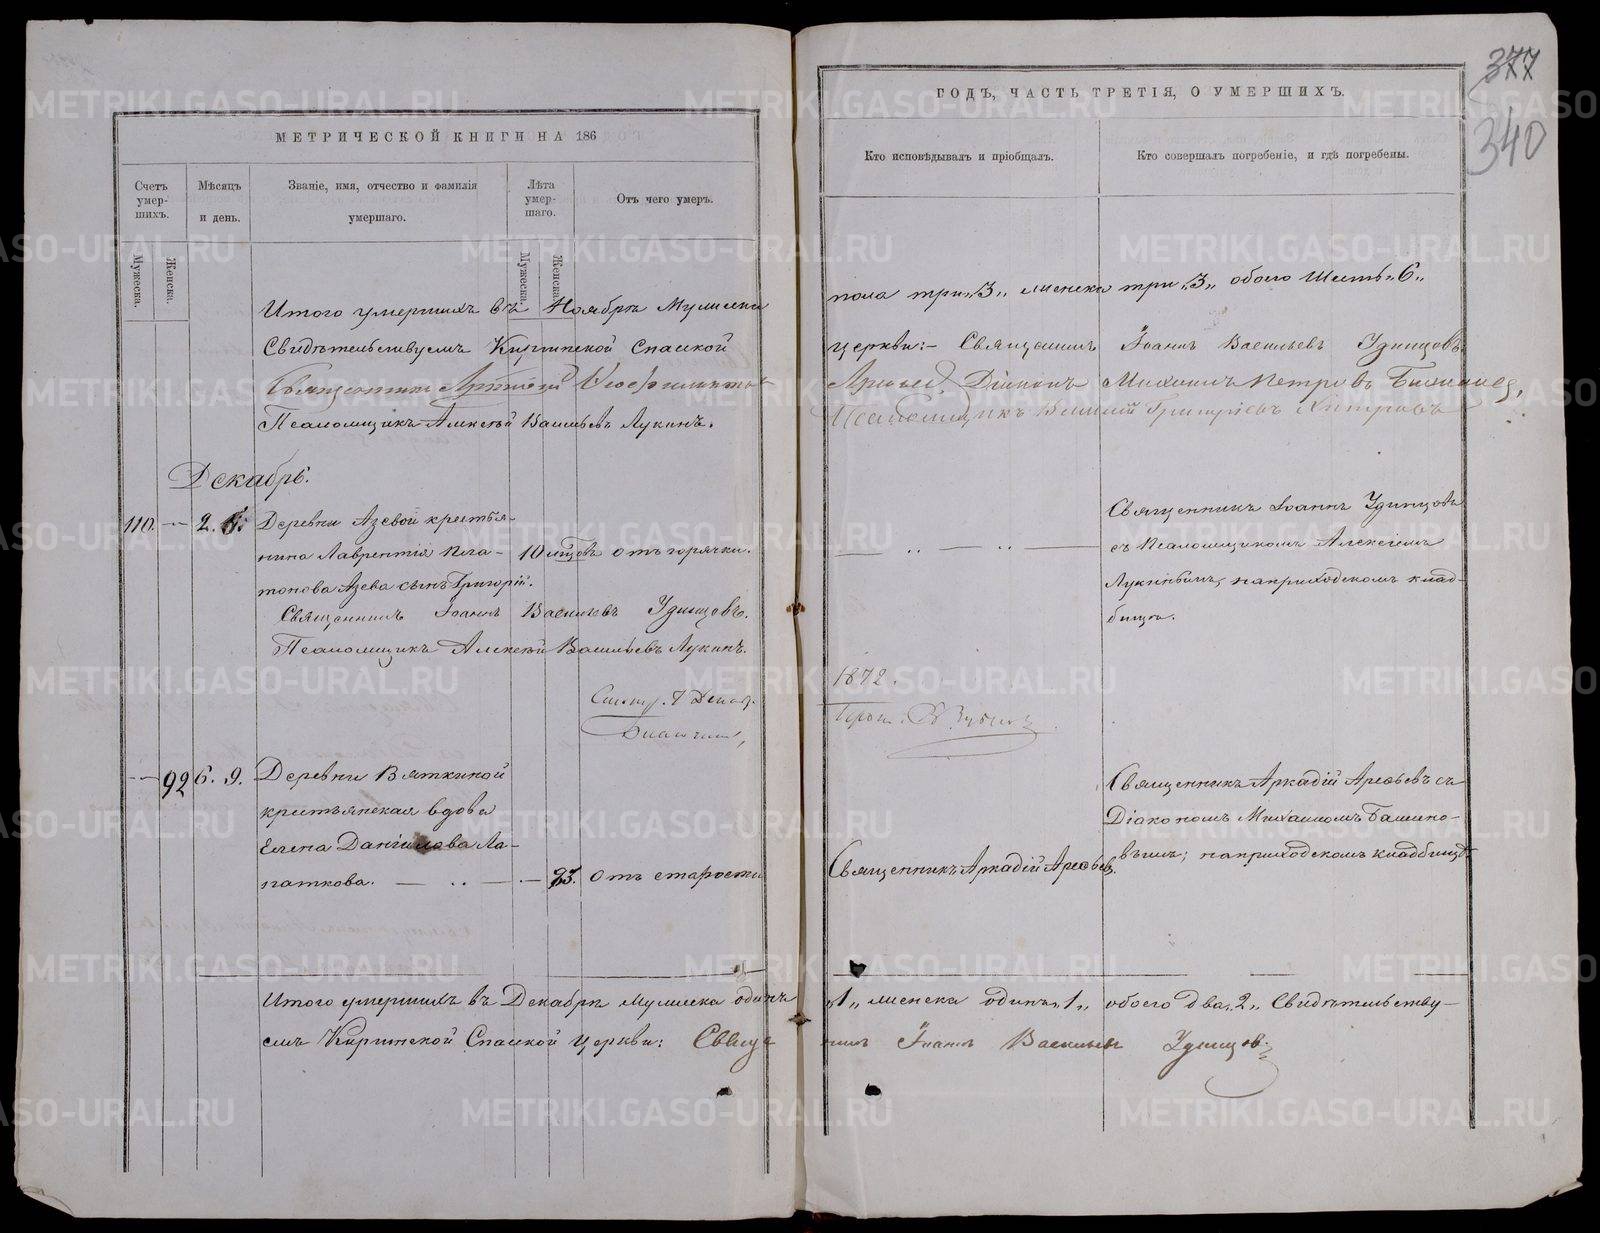 МЕТРИЧЕСКОЙ КНИГИ НА 186
Счетъ умер-шихъ.
Мужеска.
Женска.
Мѣсяцъ и день.
Званіе, имя, отчество и фамилія умершаго.
Лѣта умер-шаго.
Мужеска.
Женска.
Отъ чего умеръ.
Итого умершихъ въ Ноябрѣ Мужеска
Свидѣтельствуемъ Киргинской Спаской
Священникъ
Псаломщикъ Алексѣй Васильевъ Лукинъ.
Декабрь.
110. — 2. 5. Деревни Азевой крестья-
нина Лаврентія Пла- 10 мѣсцевъ отъ горячки.
тонова Азева сынъ Григорій.
Священникъ Іоаннъ Васильевъ Удинцовъ.
Псаломщикъ Алексѣй Васильевъ Лукинъ.
7 Декаб.
— 92 6. 9. Деревни Вяткиной
крестьянская вдова
Елена Данилова Ла-
паткова. — „ — — 83. отъ старости
Итого умершихъ въ Декабрѣ мужеска одинъ
емъ Киргинской Спаской церкви: Свяще
377
340
ГОДЪ, ЧАСТЬ ТРЕТІЯ, О УМЕРШИХЪ.
Кто исповѣдывалъ и пріобщалъ.
Кто совершалъ погребеніе, и гдѣ погребены.
пола три „3„ женска три „3„ обоего Шесть „6„
церкви:- Священникъ Іоаннъ Васильевъ Удинцовъ.
Арефьев Діаконъ Михаилъ Петровъ
Псаломщикъ Василій Григорьевъ
Священникъ Іоаннъ Удинцовъ
съ Псаломщикомъ Алексѣемъ
Лукинымъ, на приходскомъ клад-
бищѣ.
1872.
Священникъ Аркадій Арефьевъ съ
Діакономъ Михаиломъ Башено-
вымъ; на приходскомъ кладбищѣ.
Священникъ Аркадій Арефьевъ.
„1„ женска одинъ „1„ обоего два „2„ Свидѣтельству-
никъ Іоаннъ Васильевъ Удинцов.
METRIKI.GASO-URAL.RU